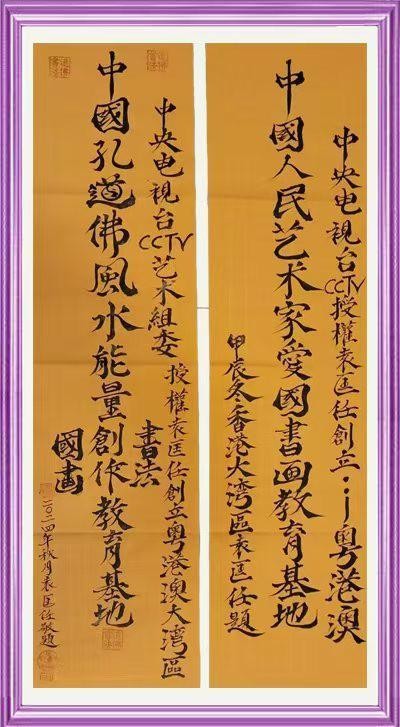 中央电視台CCTV授權袁匡任創立：粤港澳
中國人民艺术家愛國書画教育基地
甲辰冬香港大湾區袁匡任題
中央电視台CCTV艺术組委授權袁匡任創立粤港澳大湾區
中國孔道佛風水能量創作教育基地
書法
國畫
二〇二四年秋月袁匡任敬題